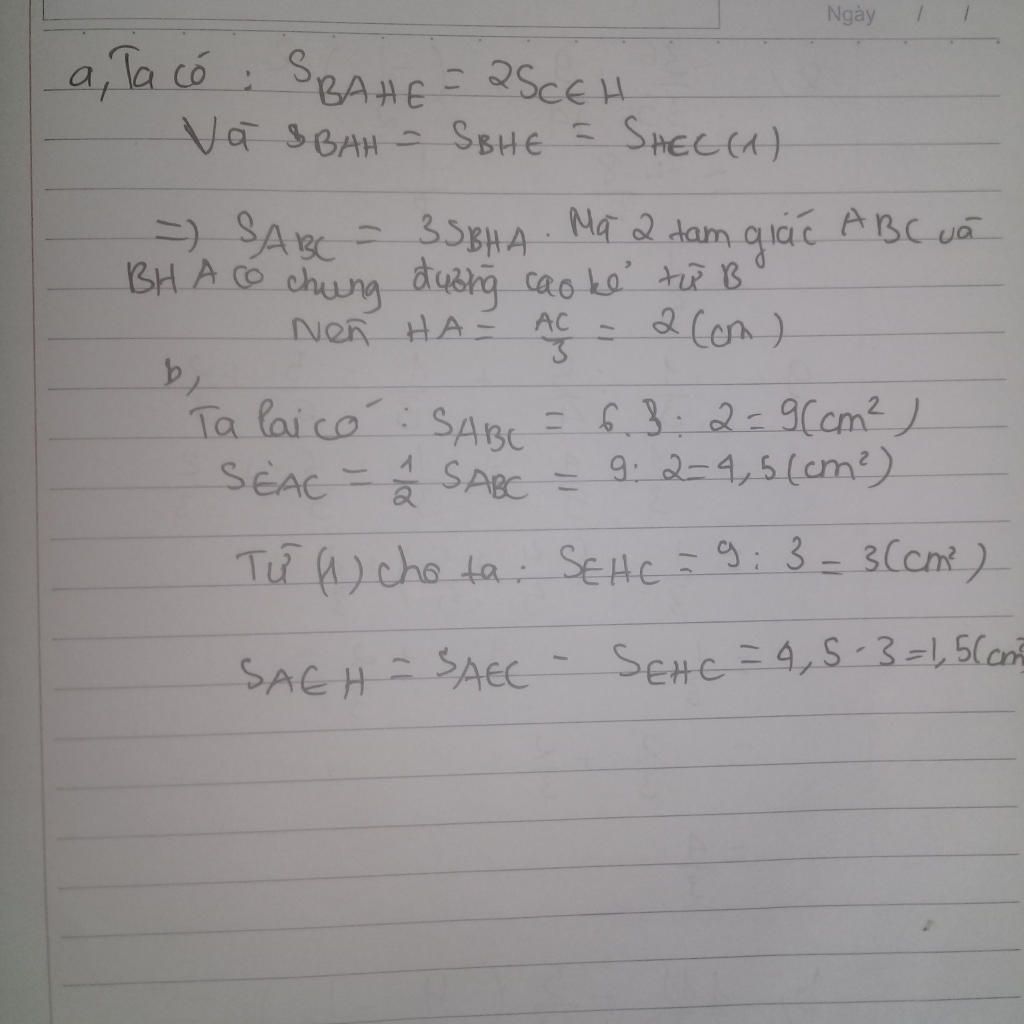 Ngày / /
a, Ta có : S_BAHE = 2S_CEH
Và S_BAH = S_BHE = S_HEC (1)
=> S_ABC = 3S_BHA. Mà 2 tam giác ABC và
BHA có chung đường cao kẻ từ B
Nên HA = AC/3 = 2 (cm)
b,
Ta lại có : S_ABC = 6.3 : 2 = 9(cm²)
S_EAC = 1/2 S_ABC = 9 : 2 = 4,5 (cm²)
Từ (1) cho ta : S_EHC = 9 : 3 = 3 (cm²)
S_AEH = S_AEC - S_EHC = 4,5 - 3 = 1,5(cm²